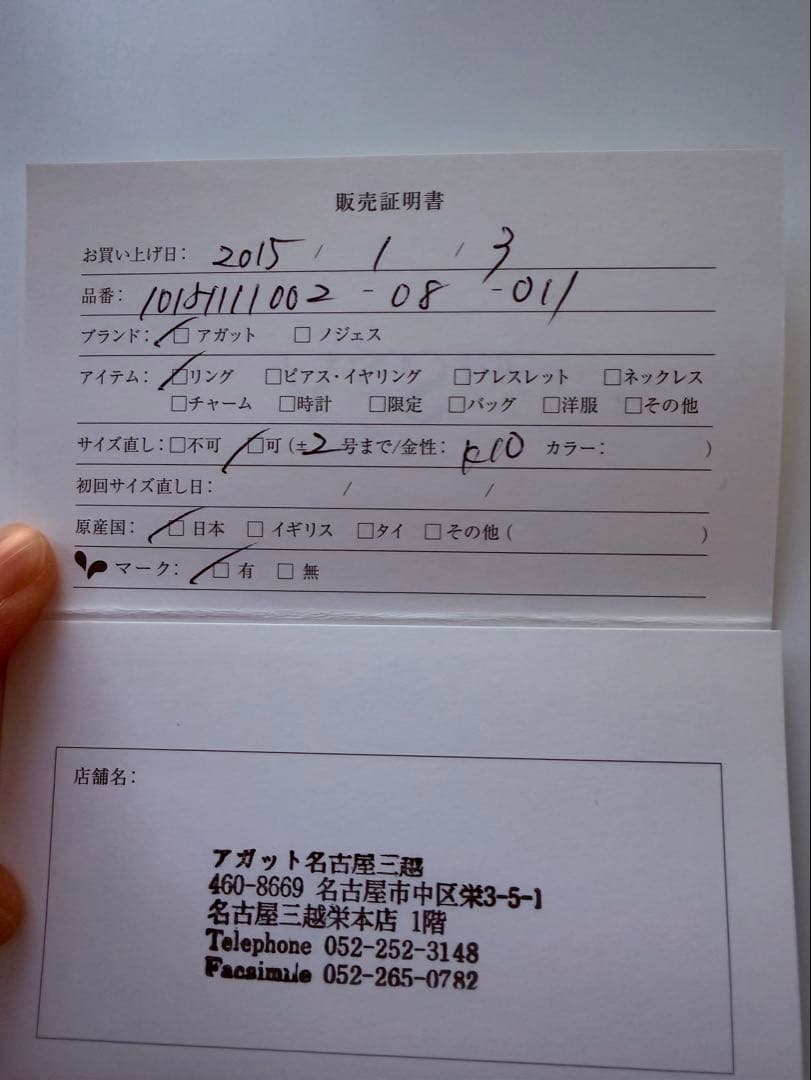 販売証明書
お買い上げ日: 2015 / 1 / 3
品番: 10151111002 - 08 - 011
ブランド: ☑ アガット □ ノジェス
アイテム: ☑リング □ピアス・イヤリング □ブレスレット □ネックレス
□チャーム □時計 □限定 □バッグ □洋服 □その他
サイズ直し: □不可 ☑可 (±2号まで/金性: K10 カラー: )
初回サイズ直し日: / /
原産国: ☑日本 □ イギリス □タイ □その他 ( )
マーク: ☑ 有 □ 無
店舗名:
アガット名古屋三越
460-8669 名古屋市中区栄3-5-1
名古屋三越栄本店 1階
Telephone 052-252-3148
Facsimile 052-265-0782